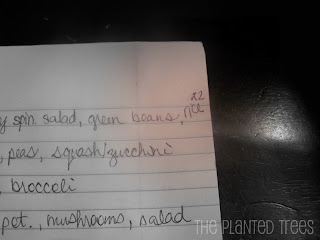 y spin. salad, green beans, rice x2
, peas, squash/zucchini
, broccoli
pot., mushrooms, salad
THE PLANTED TREES